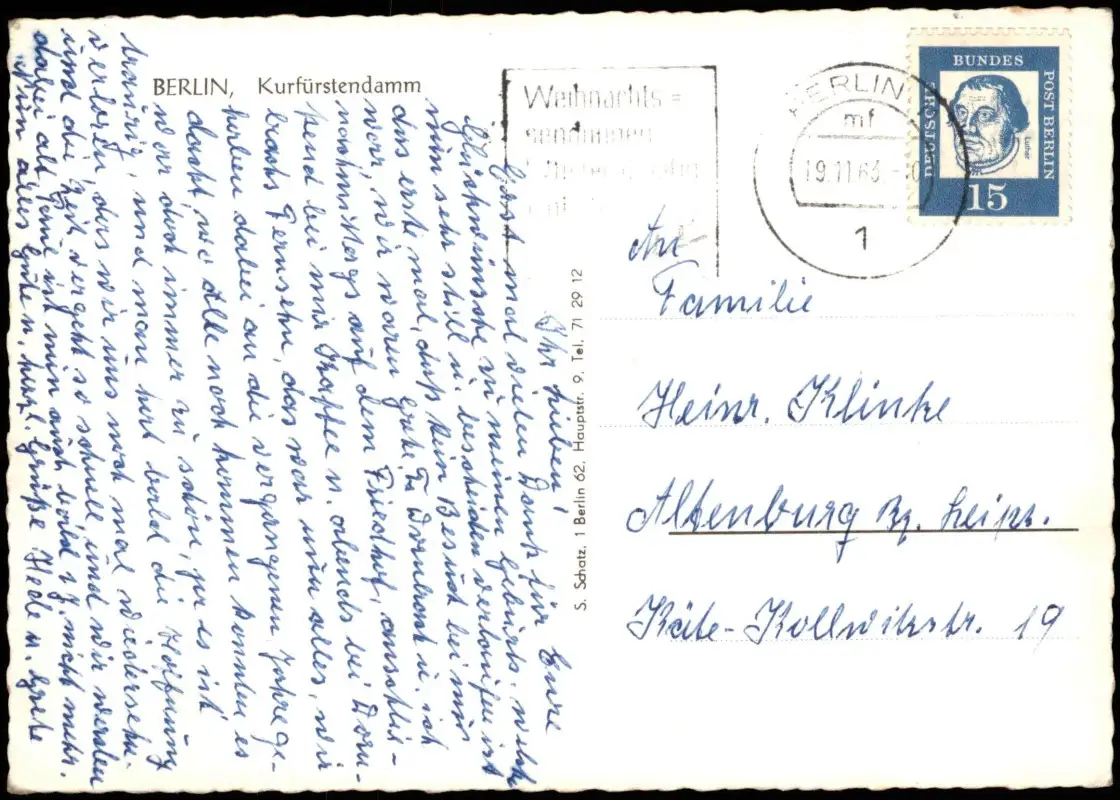 BERLIN, Kurfürstendamm
Weihnachts=
sendungen
BERLIN
mf
19.11.63.
1
DEUTSCHE
BUNDES
POST BERLIN
Luther
15
S. Schatz, 1 Berlin 62, Hauptstr. 9, Tel. 71 29 12
Ihr Lieben!
Ganz mal vielen Dank für Eure
Glückwünsche zu meinen Geburts, welch
nun sehr still u. bescheiden verlaufen ist
das erste mal, daß kein Besuch bei mir
war, wir waren Grete, Fr. Dornbort u. ich
nachmittags auf dem Friedhof, anschlie-
ßend bei mir Kaffee u. abends bei Dorn-
Fernsehn, das war nun alles, wir
haben dabei an die vergangenen Jahre ge-
dacht, wo alle noch kommen konnten es
war doch immer zu schön, ja es ist
traurig, und man hat bald die Hoffnung
verloren, das wir uns noch mal wiedersehn.
und die Zeit vergeht so schnell und wir werden
dabei alt, Grete ist nun auch bald 7 J. nicht mehr.
Nun alles Gute u. herzl. Grüße Hede u. Grete
An
Familie
Heinr. Klinke
Altenburg Bz. Leipz.
Käte-Kollwitzstr. 19